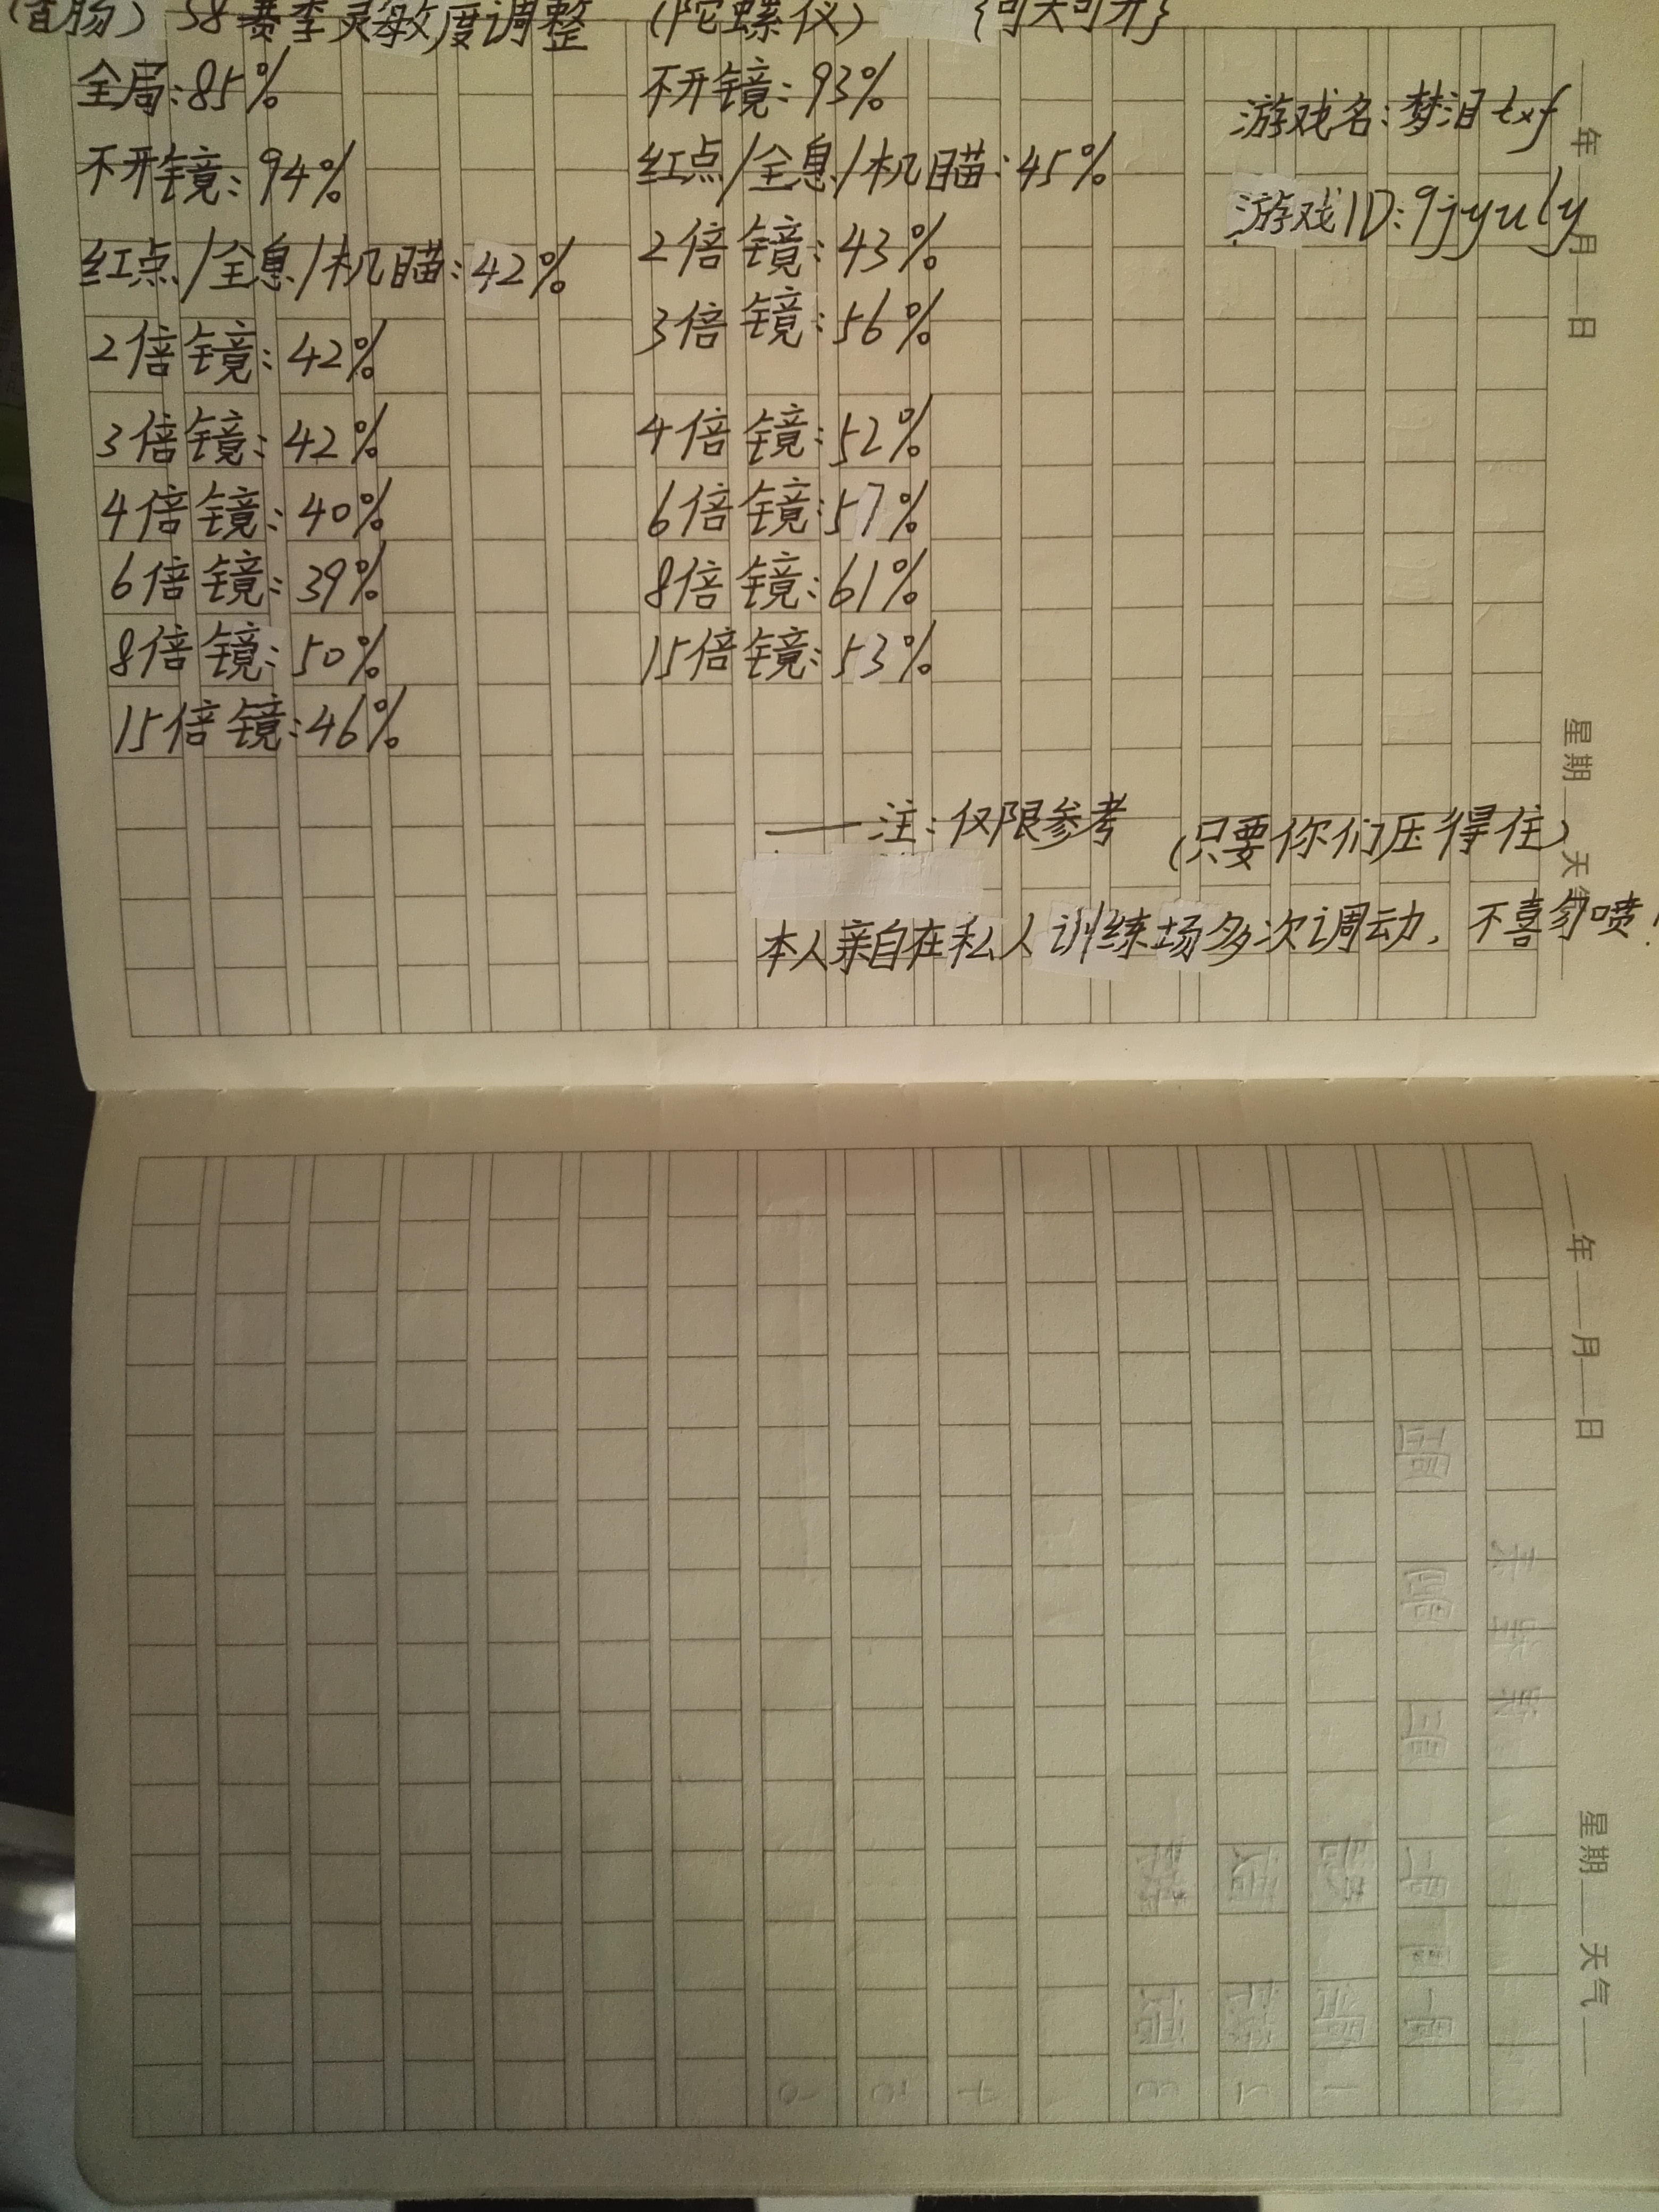 S8赛季灵敏度调整 (陀螺仪) {可关可开}
全局:85%
不开镜:94%
红点/全息/机瞄:42%
2倍镜:42%
3倍镜:42%
4倍镜:40%
6倍镜:39%
8倍镜:50%
15倍镜:46%
不开镜:93%
红点/全息/机瞄:45%
2倍镜:43%
3倍镜:56%
4倍镜:52%
6倍镜:57%
8倍镜:61%
15倍镜:53%
游戏名:梦泪txf
游戏ID:9jyuly
——注:仅限参考 (只要你们压得住)
本人亲自在私人训练场多次调动,不喜勿喷!
年 月 日
星期 天气
年 月 日
星期 天气